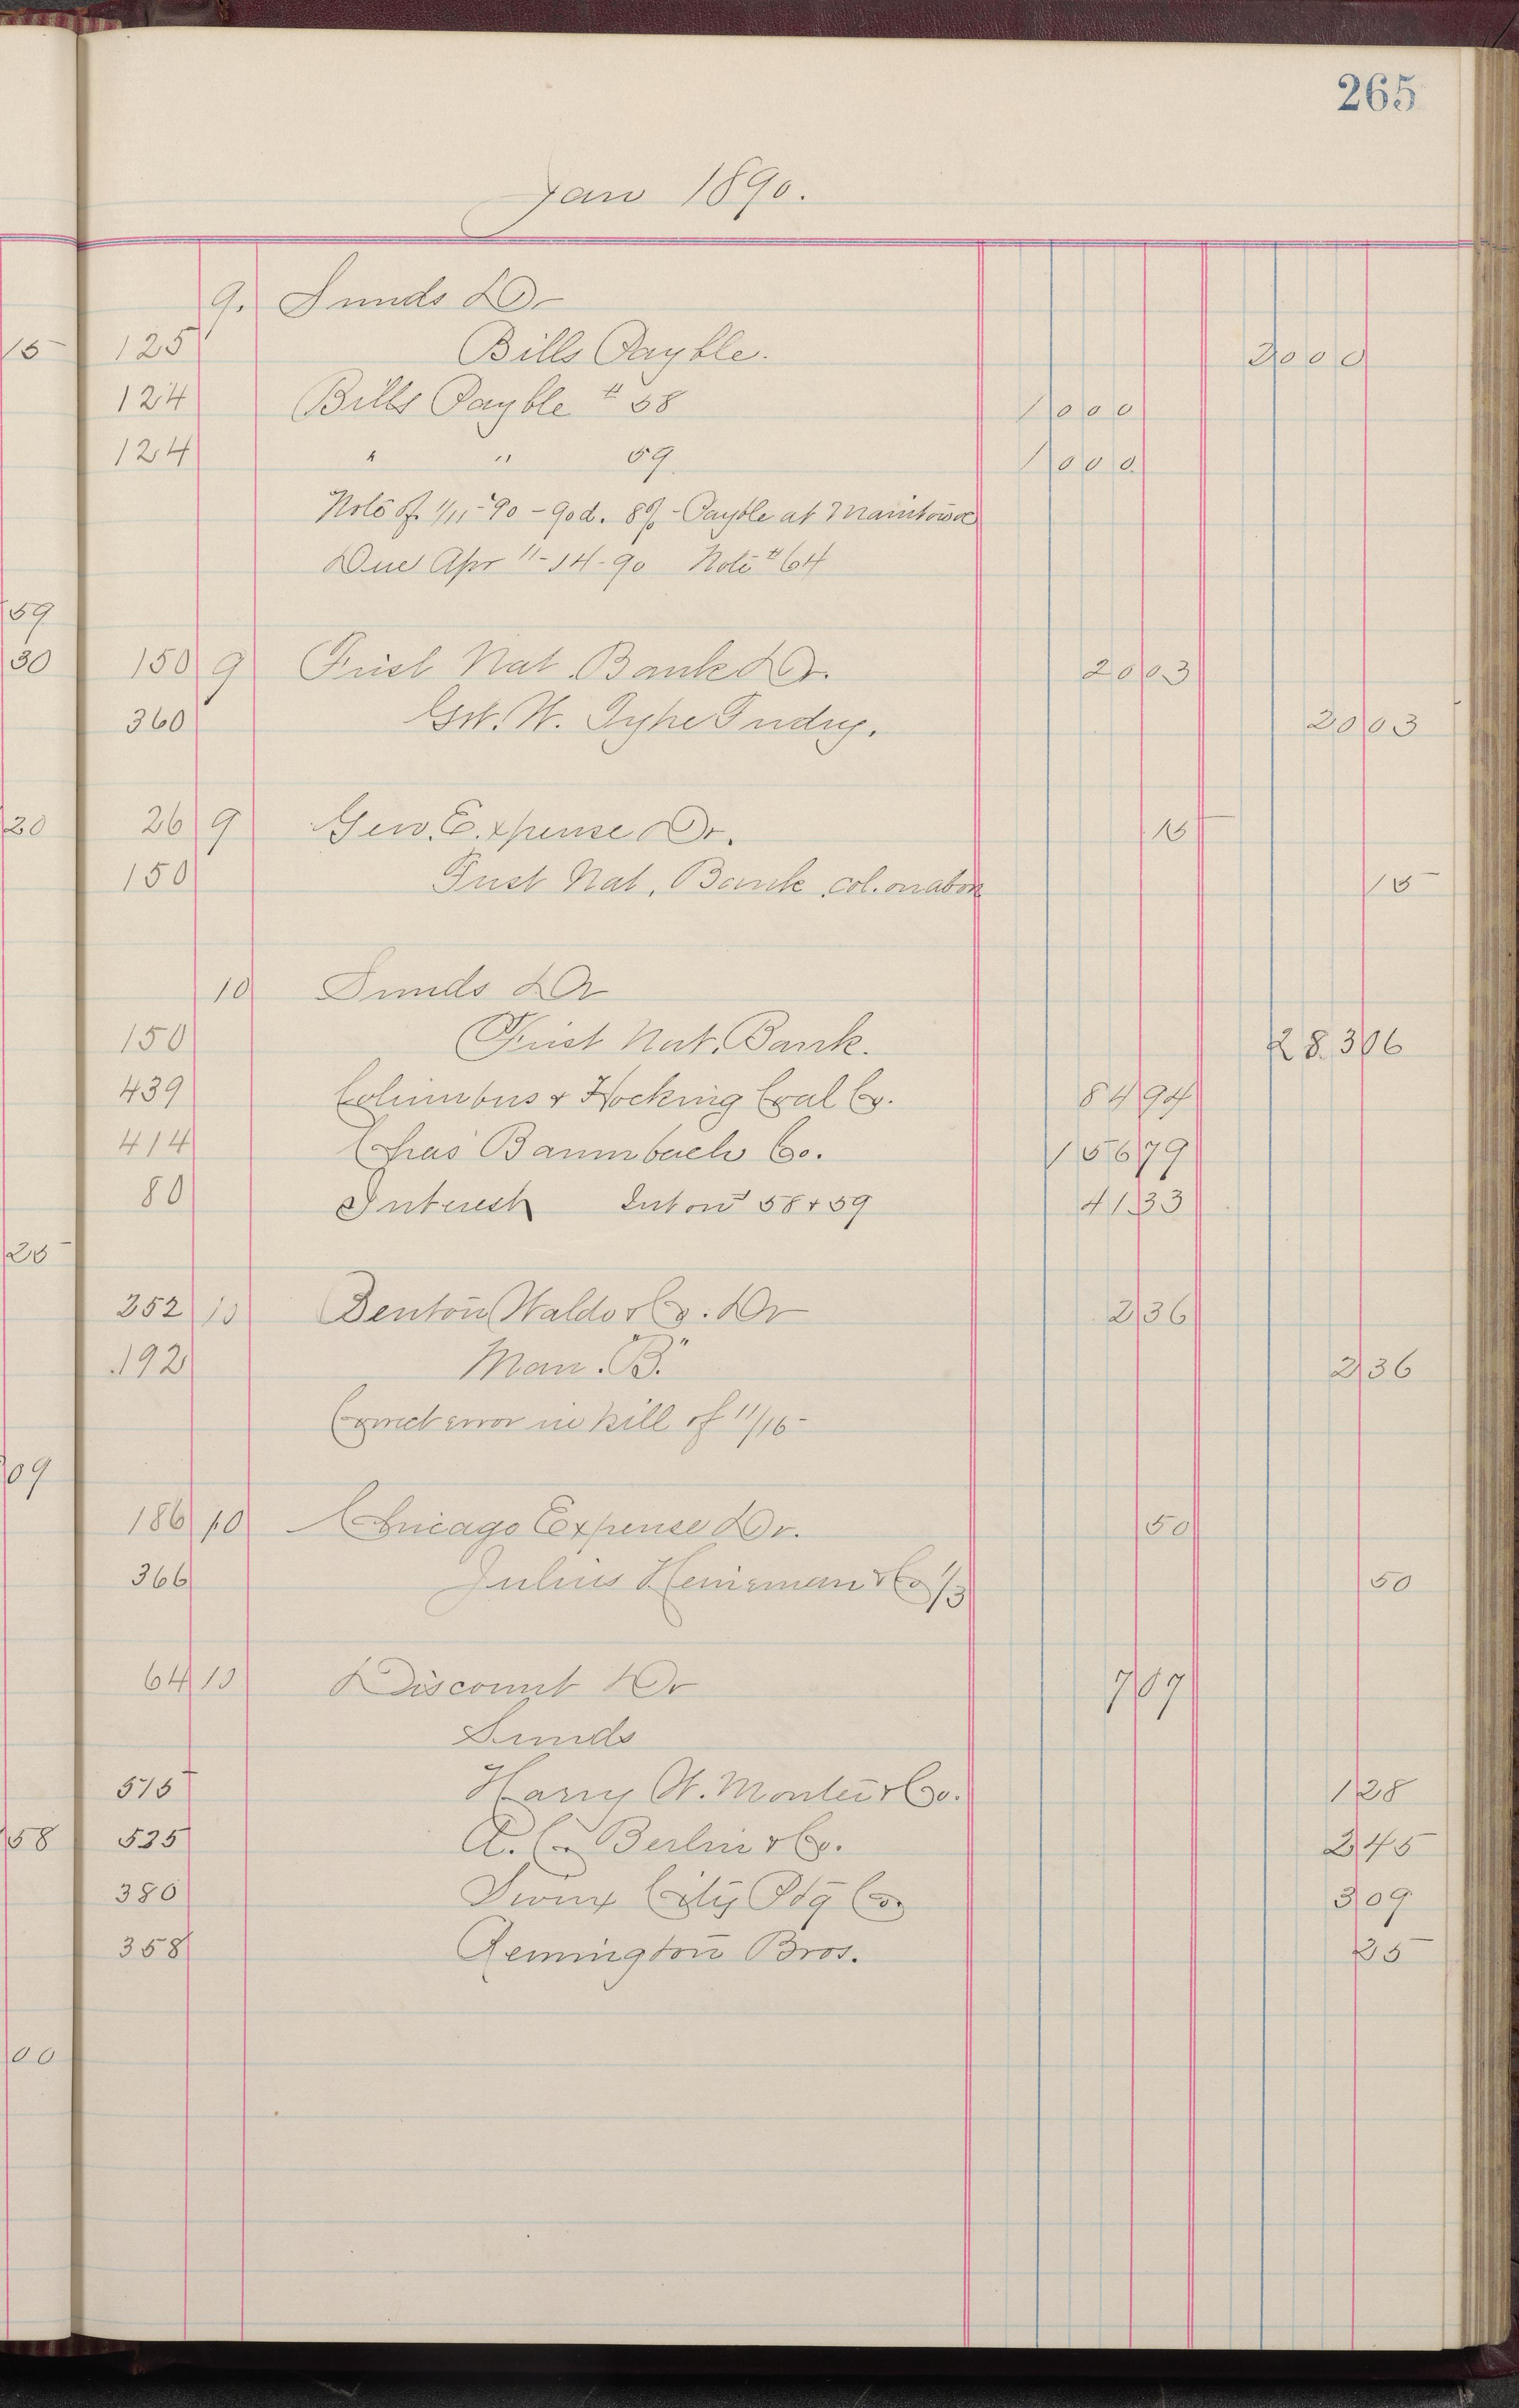 265
Jan 1890.
9. Sunds Dr
15 125 Bills Payble. 2000
124 Bills Payble # 58 1000
124 " " 59 1000
Note of 1/11-90 - 90d. 8% - Payble at Manitowoc
Due Apr 11-14-90 Note # 64
59
30 150 9 First Nat Bank Dr. 2003
360 Gt. W. Type Fndry. 2003
20 26 9 Gen. Expense Dr. 15
150 First Nat. Bank col. on abov 15
10 Sunds Dr
150 First Nat. Bank. 28306
439 Columbus & Hocking Coal Co. 8494
414 Chas Baumbach Co. 15679
80 Interest Int on 58 & 59 4133
25
252 10 Benton Waldo & Co. Dr 236
192 Man. "B." 236
Correct error in bill of 11/15
09
186 10 Chicago Expense Dr. 50
366 Julius Heineman & Co 1/3 50
64 10 Discount Dr 707
Sunds
515 Harry W. & Co. 128
58 535 A. C. Berlin & Co. 245
380 Sioux City Ptg Co 309
358 Remington Bros. 25
00